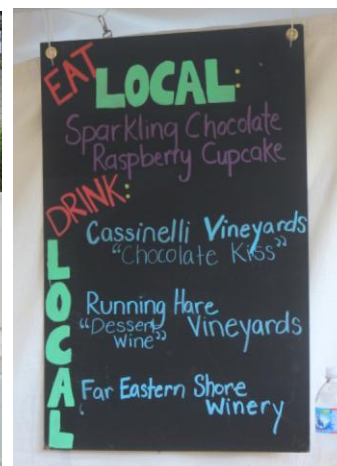 EAT LOCAL:
Sparkling Chocolate
Raspberry Cupcake
DRINK:
LOCAL
Cassinelli Vineyards
"Chocolate Kiss"
Running Hare
"Dessert Vineyards
Wine"
Far Eastern Shore
Winery